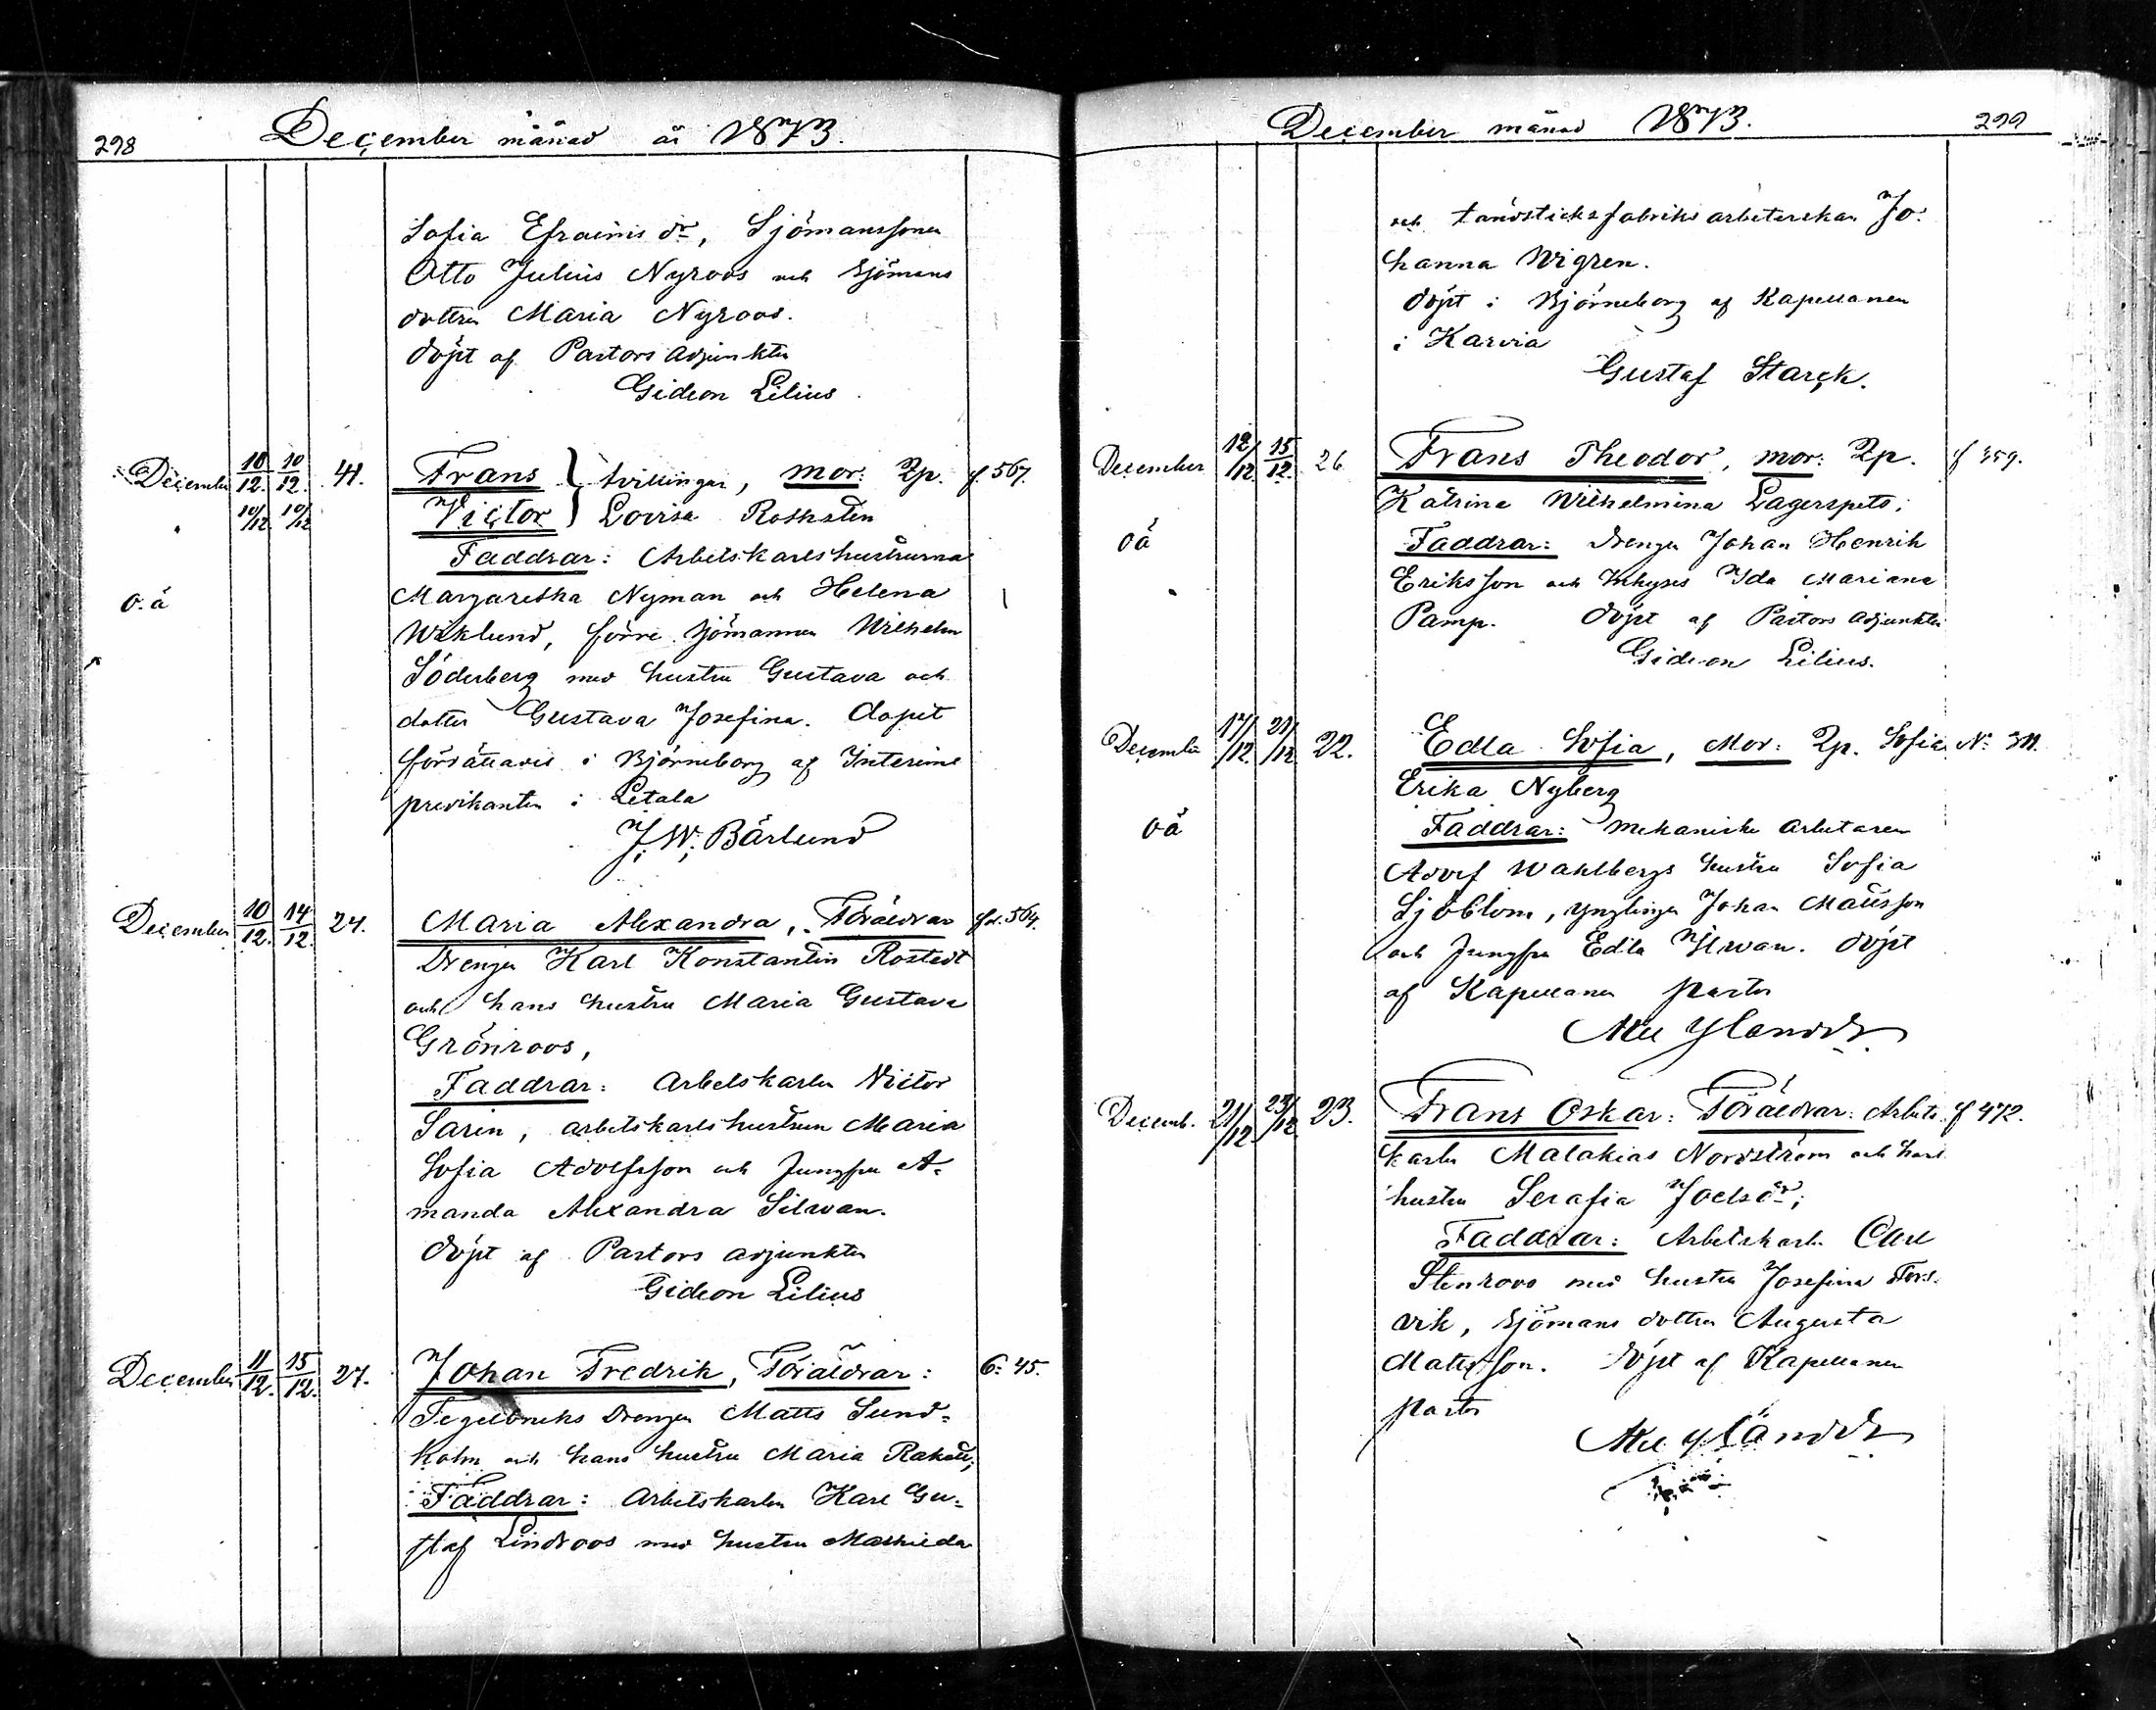 298 December månad år 1873.
Sofia Efraims dr, Sjömanssonen
Otto Julius Nyroos och sjömans
dottren Maria Nyroos.
döpt af Pastors adjunkten
Gideon Lilius
December 10/12. 10/12. 41. Frans } tvillingar, mor: Qp. f. 567.
10/12 10/12 Victor } Lovisa Rothsten
Faddrar: Arbetskarlshustrurna
o.ä Margaretha Nyman och Helena
Wiklund, förre sjömannen Wilhelm
Söderberg med hustru Gustava och
dotter Gustava Josefina. Dopet
förrättades i Björneborg af Interims
predikanten i Letala
J. W. Bärlund
December 10/12. 14/12. 24. Maria Alexandra, Föräldrar fol. 564.
Drengen Karl Konstantin Rostedt
och hans hustru Maria Gustava
Grönroos,
Faddrar: Arbetskarlen Victor
Sarin, arbetskarlshustrun Maria
Sofia Adolfsson och Jungfru A-
manda Alexandra Silvan.
döpt af Pastors adjunkten
Gideon Lilius
December 11/12. 15/12. 27. Johan Fredrik, Föräldrar: 6: 45.
Tegelbruks drengen Matts Sund-
holm och hans hustru Maria
Faddrar: Arbetskarlen Karl Gu-
staf Lindroos med hustru Mathilda
December månad 1873. 299
och tändsticksfabriks arbeterskan Jo-
hanna Wigren.
döpt i Björneborg af Kapellanen
i Karvia
Gustaf Starck.
December 12/12. 15/12. 26 Frans Theodor, mor: Qp. f 359.
Katrina Wilhelmina Lagerspets;
oä Faddrar: Drengen Johan Henrik
Eriksson och Inhyses Ida Mariana
Pamp. döpt af Pastors adjunkten
Gideon Lilius.
December 17/12. 21/12 22. Edla Sofia, Mor: Qp. Sofia N: 311.
Erika Nyberg
oä Faddrar: Mekaniske arbetaren
Adolf Wahlbergs hustru Sofia
Sjöblom, ynglingen Johan Matsson
och Jungfru Edla. döpt
af Kapellanen Pastor
Ylander
Decemb. 21/12 23/12 23. Frans Oskar: Föräldrar: Arbets f 472.
karlen Malakias Nordström och hans
hustru Serafia Joelsdr;
Faddrar: Arbetskarl. Carl
Stenroos med hustru Josefina Fors-
vik, Sjömans dottren Augusta
Matsson. döpt af Kapellanen
Pastor
Ylander